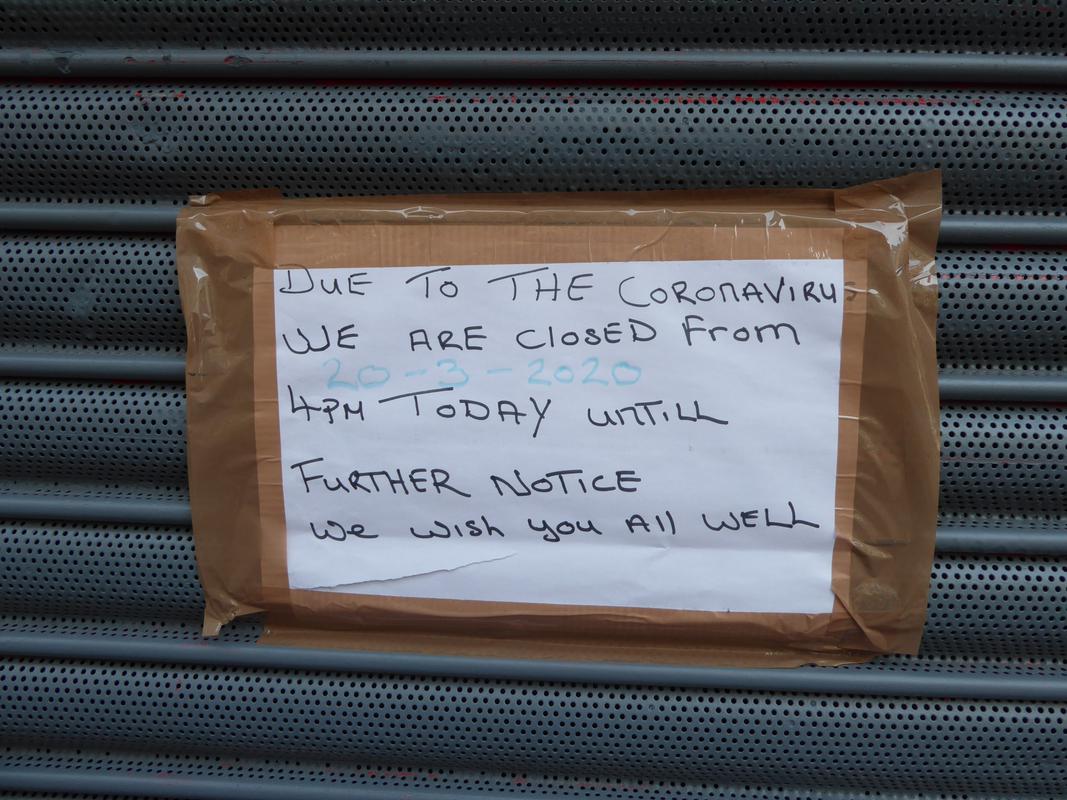 DUE TO THE CORONAVIRUS
WE ARE CLOSED From
20-3-2020
4PM TODAY UNTILL
FURTHER NOTICE
we wish you All WELL